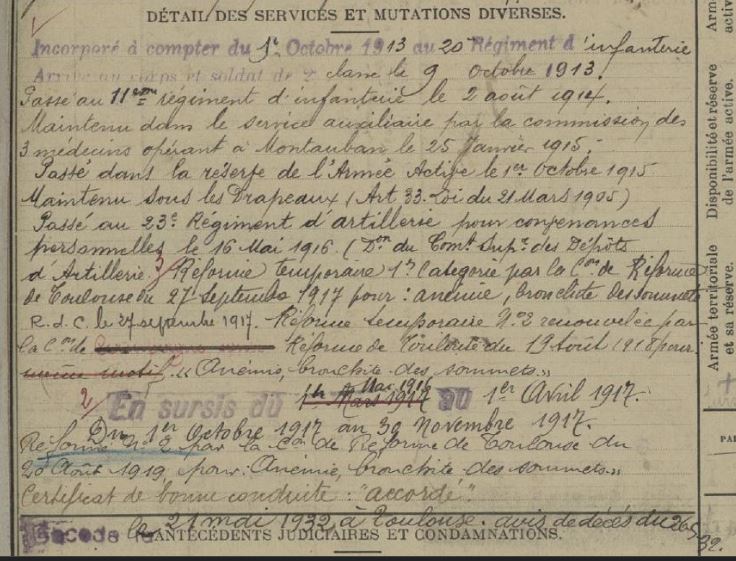 DÉTAIL DES SERVICES ET MUTATIONS DIVERSES.
Incorporé à compter du 1er Octobre 1913 au 20e Régiment d'infanterie
Arrivé au corps et soldat de 2e classe le 9 Octobre 1913.
Passé au 11eme régiment d'infanterie le 2 août 1914.
Maintenu dans le service auxiliaire par la commission des
3 médecins opérant à Montauban le 25 Janvier 1915.
Passé dans la réserve de l'Armée Active le 1er Octobre 1915
Maintenu sous les Drapeaux (Art 33. Loi du 21 Mars 1905)
Passé au 23e Régiment d'artillerie pour convenances
personnelles le 16 Mai 1916 (Don du Comt Supr des Dépôts
d'Artillerie. 3/ Réformé temporaire 1re Catégorie par la Con de Réforme
de Toulouse du 27 Septembre 1917 pour : anémie, bronchite des sommets
R.d.C. le 27 septembre 1917. Réforme temporaire No 2 renouvelée par
la Con de Réforme de Toulouse du 19 Août 1918 pour
"Anémie, bronchite des sommets"
2/ En sursis du Mai 1916 au 1er Avril 1917.
Du 1er Octobre 1917 au 30 Novembre 1917.
Réformé No 2 par la Con de Réforme de Toulouse du
20 Août 1919, pour: Anémie, bronchite des sommets"
Certificat de bonne conduite : "accordé"
Décédé le 21 mai 1932 à Toulouse. avis de décès du 26-5-32.
ANTÉCÉDENTS JUDICIAIRES ET CONDAMNATIONS.
Disponibilité et réserve
de l'armée active.
Armée territoriale
et sa réserve.